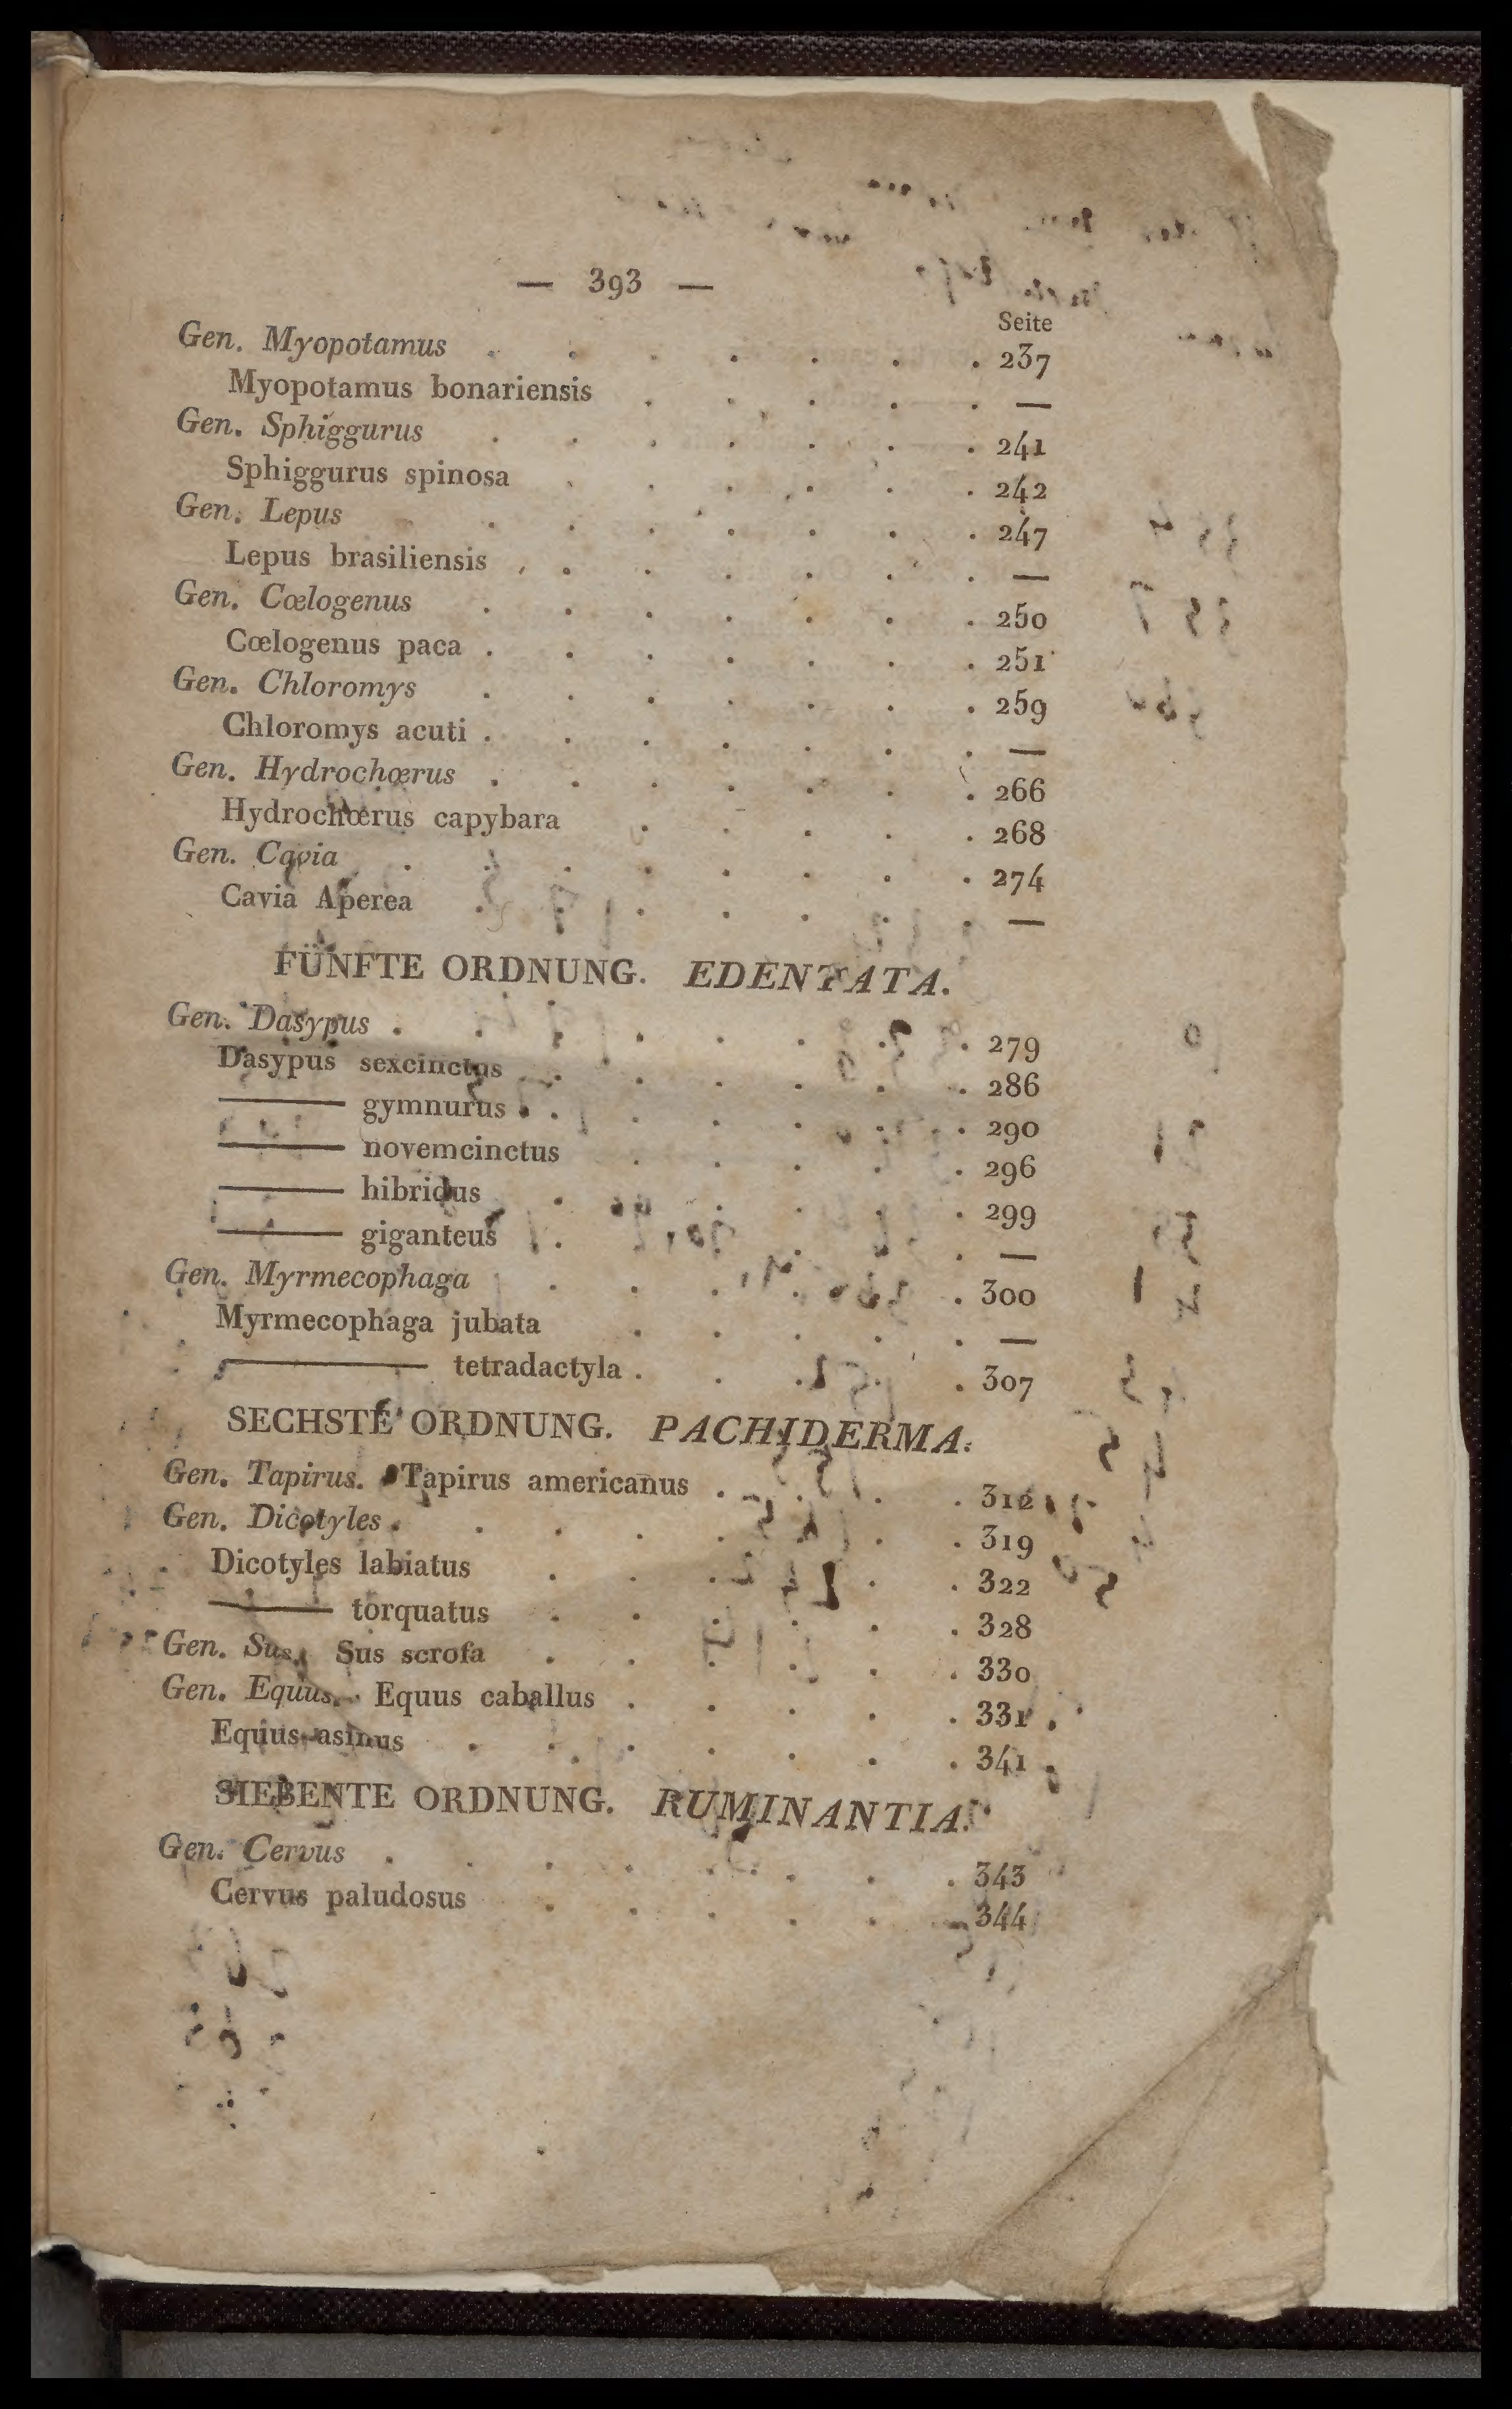 — 393 —
Seite
Gen. Myopotamus . . . . . . . 237
Myopotamus bonariensis . . . . . —
Gen. Sphiggurus . . . . . . . 241
Sphiggurus spinosa . . . . . . 242
Gen. Lepus . . . . . . . 247
Lepus brasiliensis . . . . . . . —
Gen. Cœlogenus . . . . . . . 250
Cœlogenus paca . . . . . . . 251
Gen. Chloromys . . . . . . . 259
Chloromys acuti . . . . . . . —
Gen. Hydrochœrus . . . . . . . 266
Hydrochœrus capybara . . . . . 268
Gen. Cavia . . . . . . . . 274
Cavia Aperea . . . . . . . —
FÜNFTE ORDNUNG. EDENTATA.
Gen. Dasypus . . . . . . . . 279
Dasypus sexcinctus . . . . . . 286
——— gymnurus . . . . . . . 290
——— novemcinctus . . . . . 296
——— hibridus . . . . . . 299
——— giganteus . . . . . . —
Gen. Myrmecophaga . . . . . . 300
Myrmecophaga jubata . . . . . —
——— tetradactyla . . . . . 307
SECHSTE ORDNUNG. PACHIDERMA.
Gen. Tapirus. Tapirus americanus . . . . 312
Gen. Dicotyles . . . . . . . . 319
Dicotyles labiatus . . . . . . 322
——— torquatus . . . . . . 328
Gen. Sus. Sus scrofa . . . . . . 330
Gen. Equus. Equus caballus . . . . . 331
Equus asinus . . . . . . . 341
SIEBENTE ORDNUNG. RUMINANTIA.
Gen. Cervus . . . . . . . . 343
Cervus paludosus . . . . . . 344